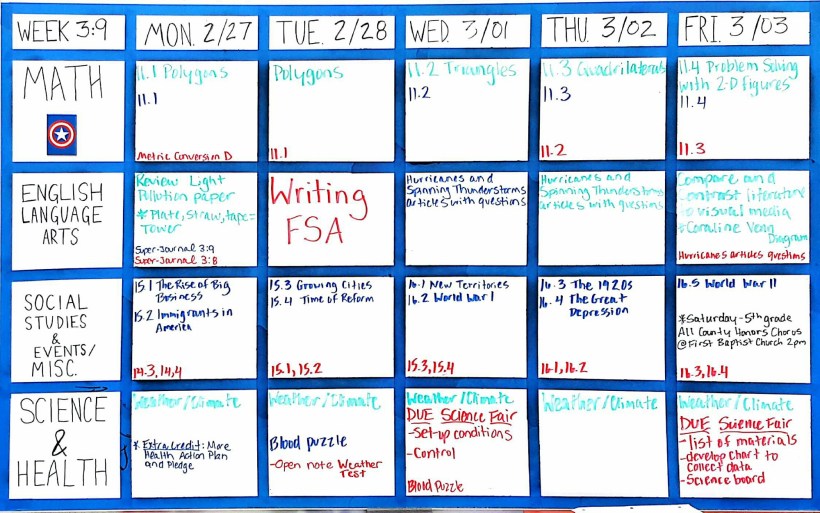 WEEK 3:9
MON. 2/27
TUE. 2/28
WED. 3/01
THU. 3/02
FRI. 3/03
MATH
11.1 Polygons
11.1
Metric Conversion D
Polygons
11.1
11.2 Triangles
11.2
11.3 Quadrilaterals
11.3
11.2
11.4 Problem Solving
with 2-D figures
11.4
11.3
ENGLISH
LANGUAGE
ARTS
Review Light
Pollution paper
*Plate, straw, tape=
Tower
Super-Journal 3:9
Super-Journal 3:8
Writing
FSA
Hurricanes and
Spinning Thunderstorms
articles with questions
Hurricanes and
Spinning Thunderstorms
articles with questions
Compare and
contrast literature
to visual media
*Coraline Venn
Diagram
Hurricanes articles questions
SOCIAL
STUDIES
&
EVENTS/
MISC.
15.1 The Rise of Big
Business
15.2 Immigrants in
America
14.3, 14.4
15.3 Growing Cities
15.4 Time of Reform
15.1, 15.2
16.1 New Territories
16.2 World War I
15.3, 15.4
16.3 The 1920s
16.4 The Great
Depression
16.1, 16.2
16.5 World War II
*Saturday-5th grade
All County Honors Chorus
@First Baptist Church 2pm
16.3, 16.4
SCIENCE
&
HEALTH
Weather/Climate
* Extra Credit: More
Health Action Plan
and Pledge
Weather/Climate
Blood puzzle
-Open note Weather
Test
Weather/Climate
DUE Science Fair
-set-up conditions
-Control
Blood Puzzle
Weather/Climate
Weather/Climate
DUE Science Fair
-list of materials
-develop chart to
collect data
-Science board